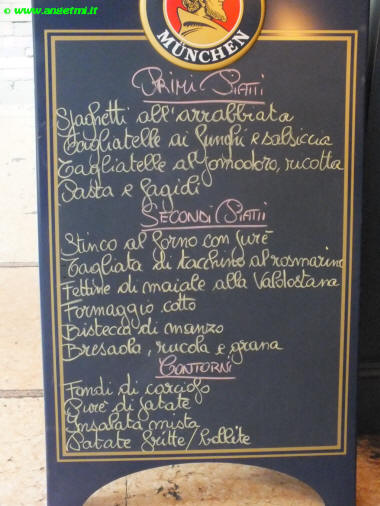 © www.angetmi.it
MÜNCHEN
PRIMI PIATTI
Spaghetti all'arrabbiata
Tagliatelle ai funghi e salsiccia
Tagliatelle al pomodoro, rucotta
Pasta e fagioli
SECONDI PIATTI
Stinco al forno con purè
Tagliata di tacchino al rosmarino
Fettine di maiale alla Valdostana
Formaggio cotto
Bistecca di manzo
Bresaola, rucola e grana
CONTORNI
Fondi di carciofo
Purè di patate
Insalata mista
Patate fritte/bollite